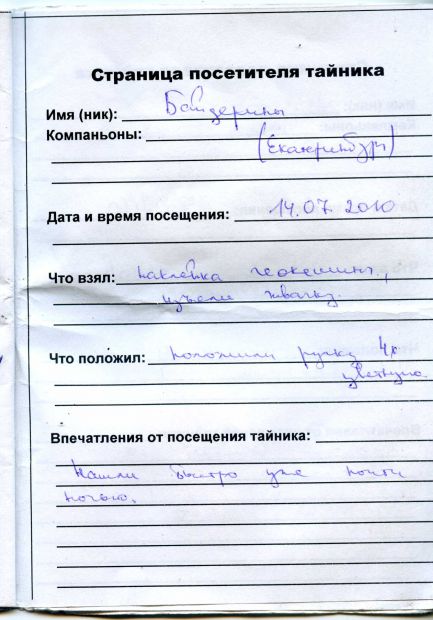 Страница посетителя тайника
Имя (ник): Байдерины
Компаньоны:
(Екатеринбург)
Дата и время посещения: 14.07 2010
Что взял: наклейка геокешинг,
изъели жвачку.
Что положил: положили ручку 4х
цветную.
Впечатления от посещения тайника:
Нашли быстро уже почти
ночью.